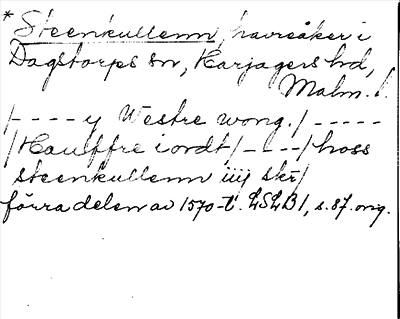 * Steenkullenn, havreåker i
Dagstorps sn, Harjagers hd,
Malm. l.
/- - - - y Westre wong./ - - - - -
/Haulffre iordt/- - - -/hoss
steenkullenn iiij skr/
förra delen av 1570-t. LSLB1, s. 87. orig.